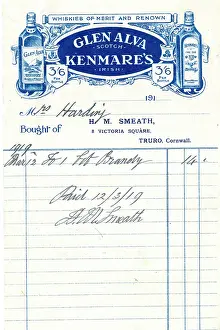 WHISKIES OF MERIT AND RENOWN
GLEN ALVA
SCOTCH
KENMARE'S
IRISH
3/6 3/6
GLEN ALVA
191
Mrs Harding
H. M. SMEATH,
Bought of
8 VICTORIA SQUARE.
TRURO, Cornwall.
1919
Mar 12 To 1 Bot Brandy 14
Paid 12/3/19
H. M. Smeath